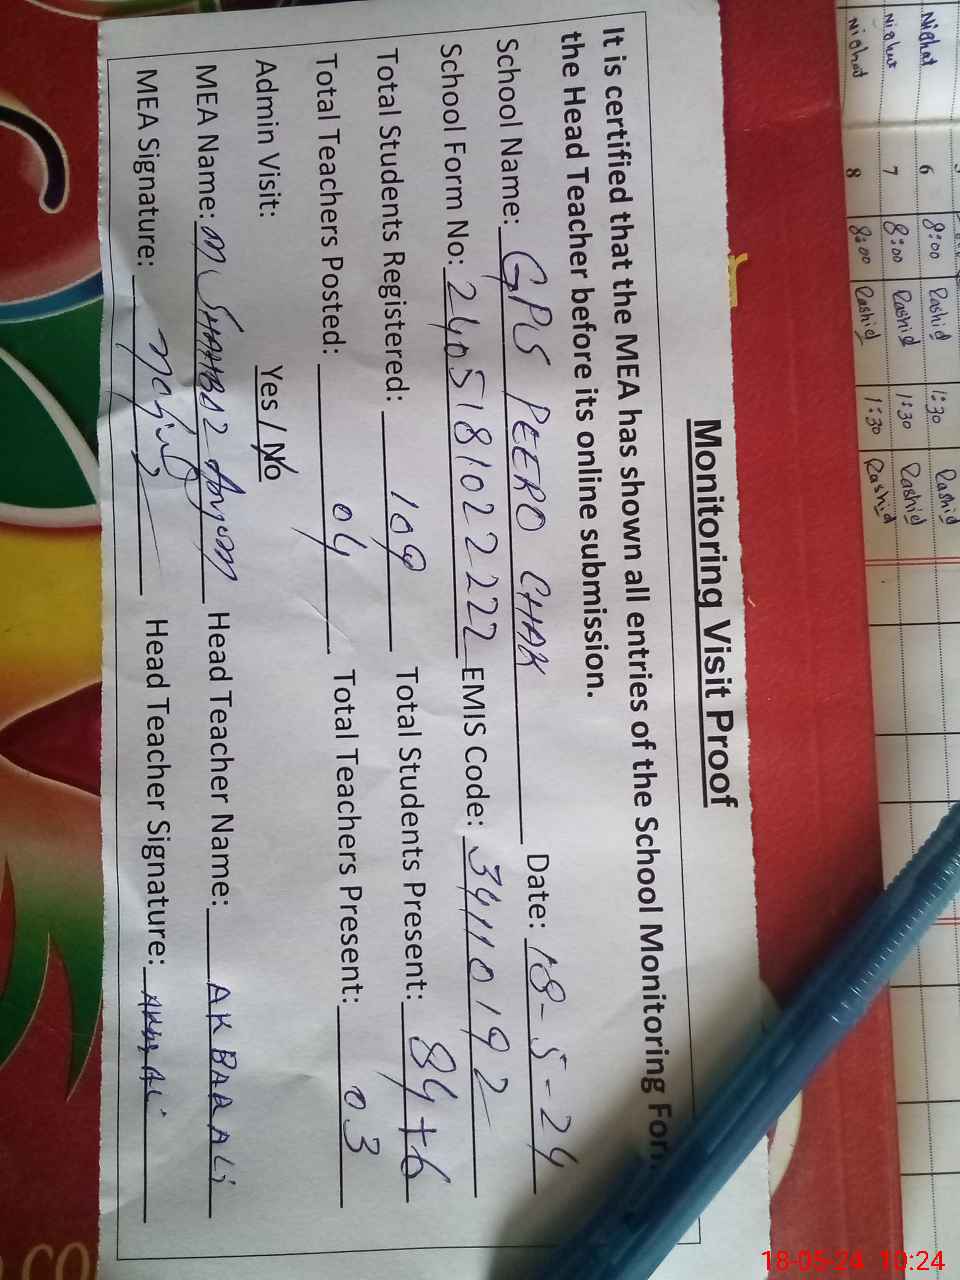 Monitoring Visit Proof
It is certified that the MEA has shown all entries of the School Monitoring For
the Head Teacher before its online submission.
School Name: GPS PEERO CHAK Date: 18-5-24
School Form No: 2405181022222 EMIS Code: 34110192
Total Students Registered: 109 Total Students Present: 84+6
Total Teachers Posted: 04 Total Teachers Present: 03
Admin Visit: Yes / No
MEA Name: M SHAHBAZ Anjum Head Teacher Name: AKBAR ALi
MEA Signature: Head Teacher Signature:
Nighat 6 8:00 Rashid 1:30 Rashid
Nighat 7 8:00 Rashid 1:30 Rashid
Nighat 8 8:00 Rashid 1:30 Rashid
CO
18-05-24 10:24